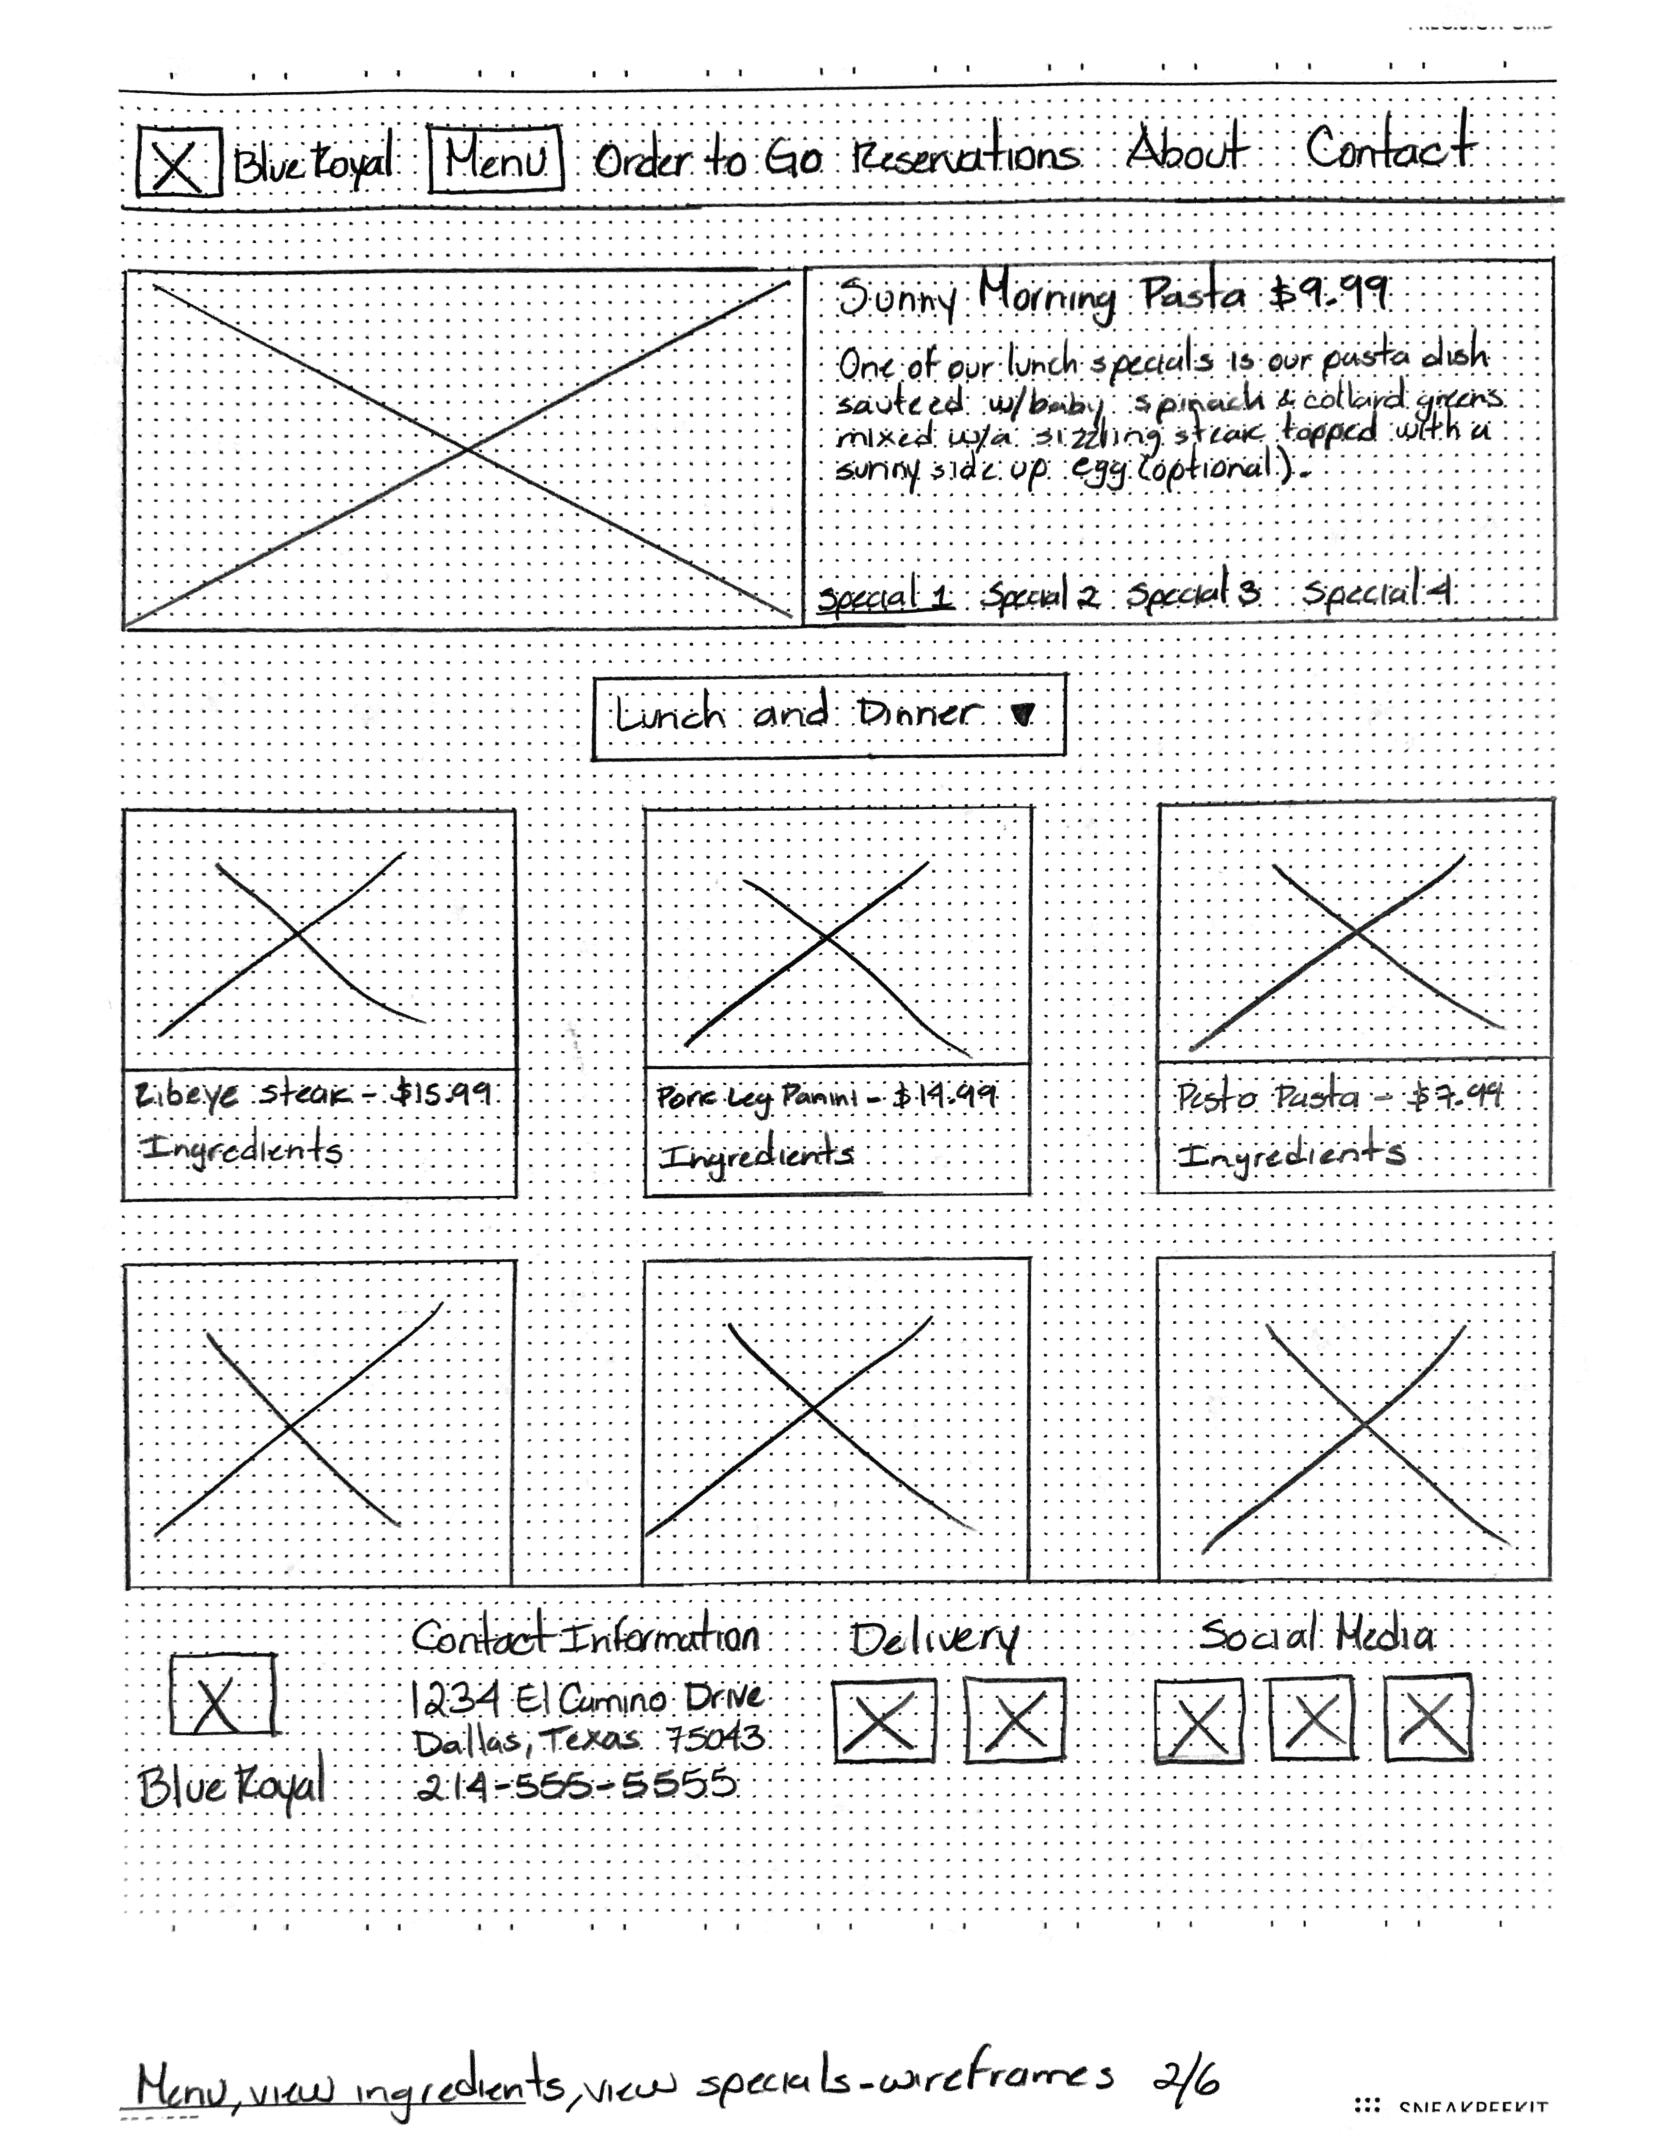 Blue Royal Menu Order to Go Reservations About Contact
Sunny Morning Pasta $9.99
One of our lunch specials is our pasta dish
sauteed w/baby spinach & collard greens
mixed w/a sizzling steak topped with a
sunny side up egg (optional).
Special 1 Special 2 Special 3 Special 4
Lunch and Dinner ▼
Ribeye steak - $15.99
Ingredients
Pork Leg Panini - $14.99
Ingredients
Pesto Pasta - $7.99
Ingredients
Blue Royal
Contact Information
1234 El Camino Drive
Dallas, Texas 75043
214-555-5555
Delivery
Social Media
Menu, view ingredients, view specials-wireframes 2/6
SNEAKPEEKIT